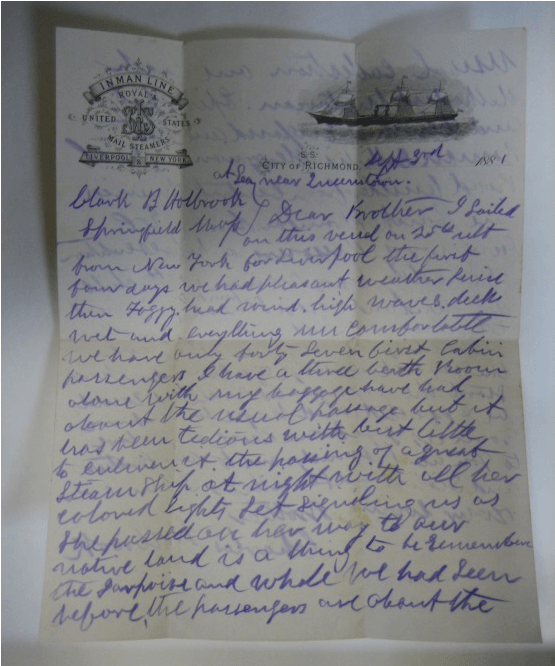 INMAN LINE
ROYAL
UNITED STATES
MAIL STEAMERS
LIVERPOOL NEW YORK
S.S.
CITY OF RICHMOND. Sept 3rd 1881
at Sea, near Queenstown.
Clark B Holbrook
Springfield Mass Dear Brother I Sailed
on this vessel on 25th ult
from New York for Liverpool the first
four days we had pleasant weather Since
then Foggy head wind. high waves. decks
wet and everything uncomfortable
we have only forty Seven first Cabin
passengers I have a three berth Room
alone with my baggage have had
about the usual passage but it
has been tedious with but little
to enliven it. the passing of a great
Steam Ship at night with all her
colored lights Set Signaling us as
She passed on her way to our
native land is a thing to be Remembered
the Porpoise and Whale we had Seen
before, the passengers are about the